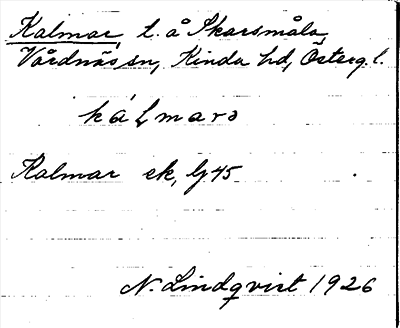 Kalmar, t. å Skarsmåla,
Vårdnäs sn, Kinda hd, Österg. l.
Kalmar ek, bj 45
N. Lindqvist 1926